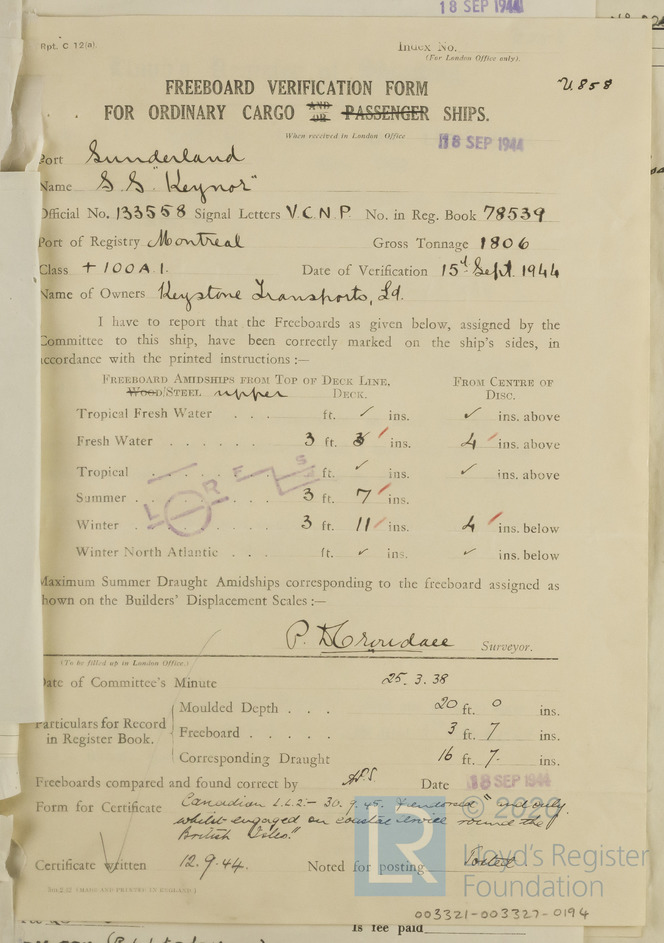 18 SEP 1944
Rpt. C 12(a).
Index No.
(For London Office only).
FREEBOARD VERIFICATION FORM
U858
FOR ORDINARY CARGO AND OR PASSENGER SHIPS.
When received in London Office
18 SEP 1944
Port Sunderland
Name S.S "Keynor"
Official No. 133558 Signal Letters V.C.N.P. No. in Reg. Book 78539
Port of Registry Montreal Gross Tonnage 1806
Class +100A.1. Date of Verification 15th Sept. 1944
Name of Owners Keystone Transports, Ld.
I have to report that the Freeboards as given below, assigned by the
Committee to this ship, have been correctly marked on the ship's sides, in
accordance with the printed instructions :—
FREEBOARD AMIDSHIPS FROM TOP OF DECK LINE, FROM CENTRE OF
WOOD/STEEL upper DECK. DISC.
Tropical Fresh Water . . . ft. ✓ ins. ✓ ins. above
Fresh Water . . . . . . 3 ft. 3 ins. 4 ins. above
Tropical . . . . . . ft. ✓ ins. ✓ ins. above
Summer . . . . . . 3 ft. 7 ins.
Winter . . . . . . 3 ft. 11 ins. 4 ins. below
Winter North Atlantic . . . ft. ✓ ins. ✓ ins. below
Maximum Summer Draught Amidships corresponding to the freeboard assigned as
shown on the Builders' Displacement Scales :—
Surveyor.
(To be filled up in London Office.)
Date of Committee's Minute 25.3.38
Moulded Depth . . . 20 ft. 0 ins.
Particulars for Record
in Register Book.
Freeboard . . . . . 3 ft. 7 ins.
Corresponding Draught 16 ft. 7. ins.
Freeboards compared and found correct by Date 18 SEP 1944
Form for Certificate Canadian L.L.2.- 30.9.45. & endorsed "only
whilst engaged on coastal service round the
British Isles."
Certificate written 12.9.44. Noted for posting Posted
© 20
LR
Lloyd's Register
Foundation
003321-003327-0194
Is fee paid